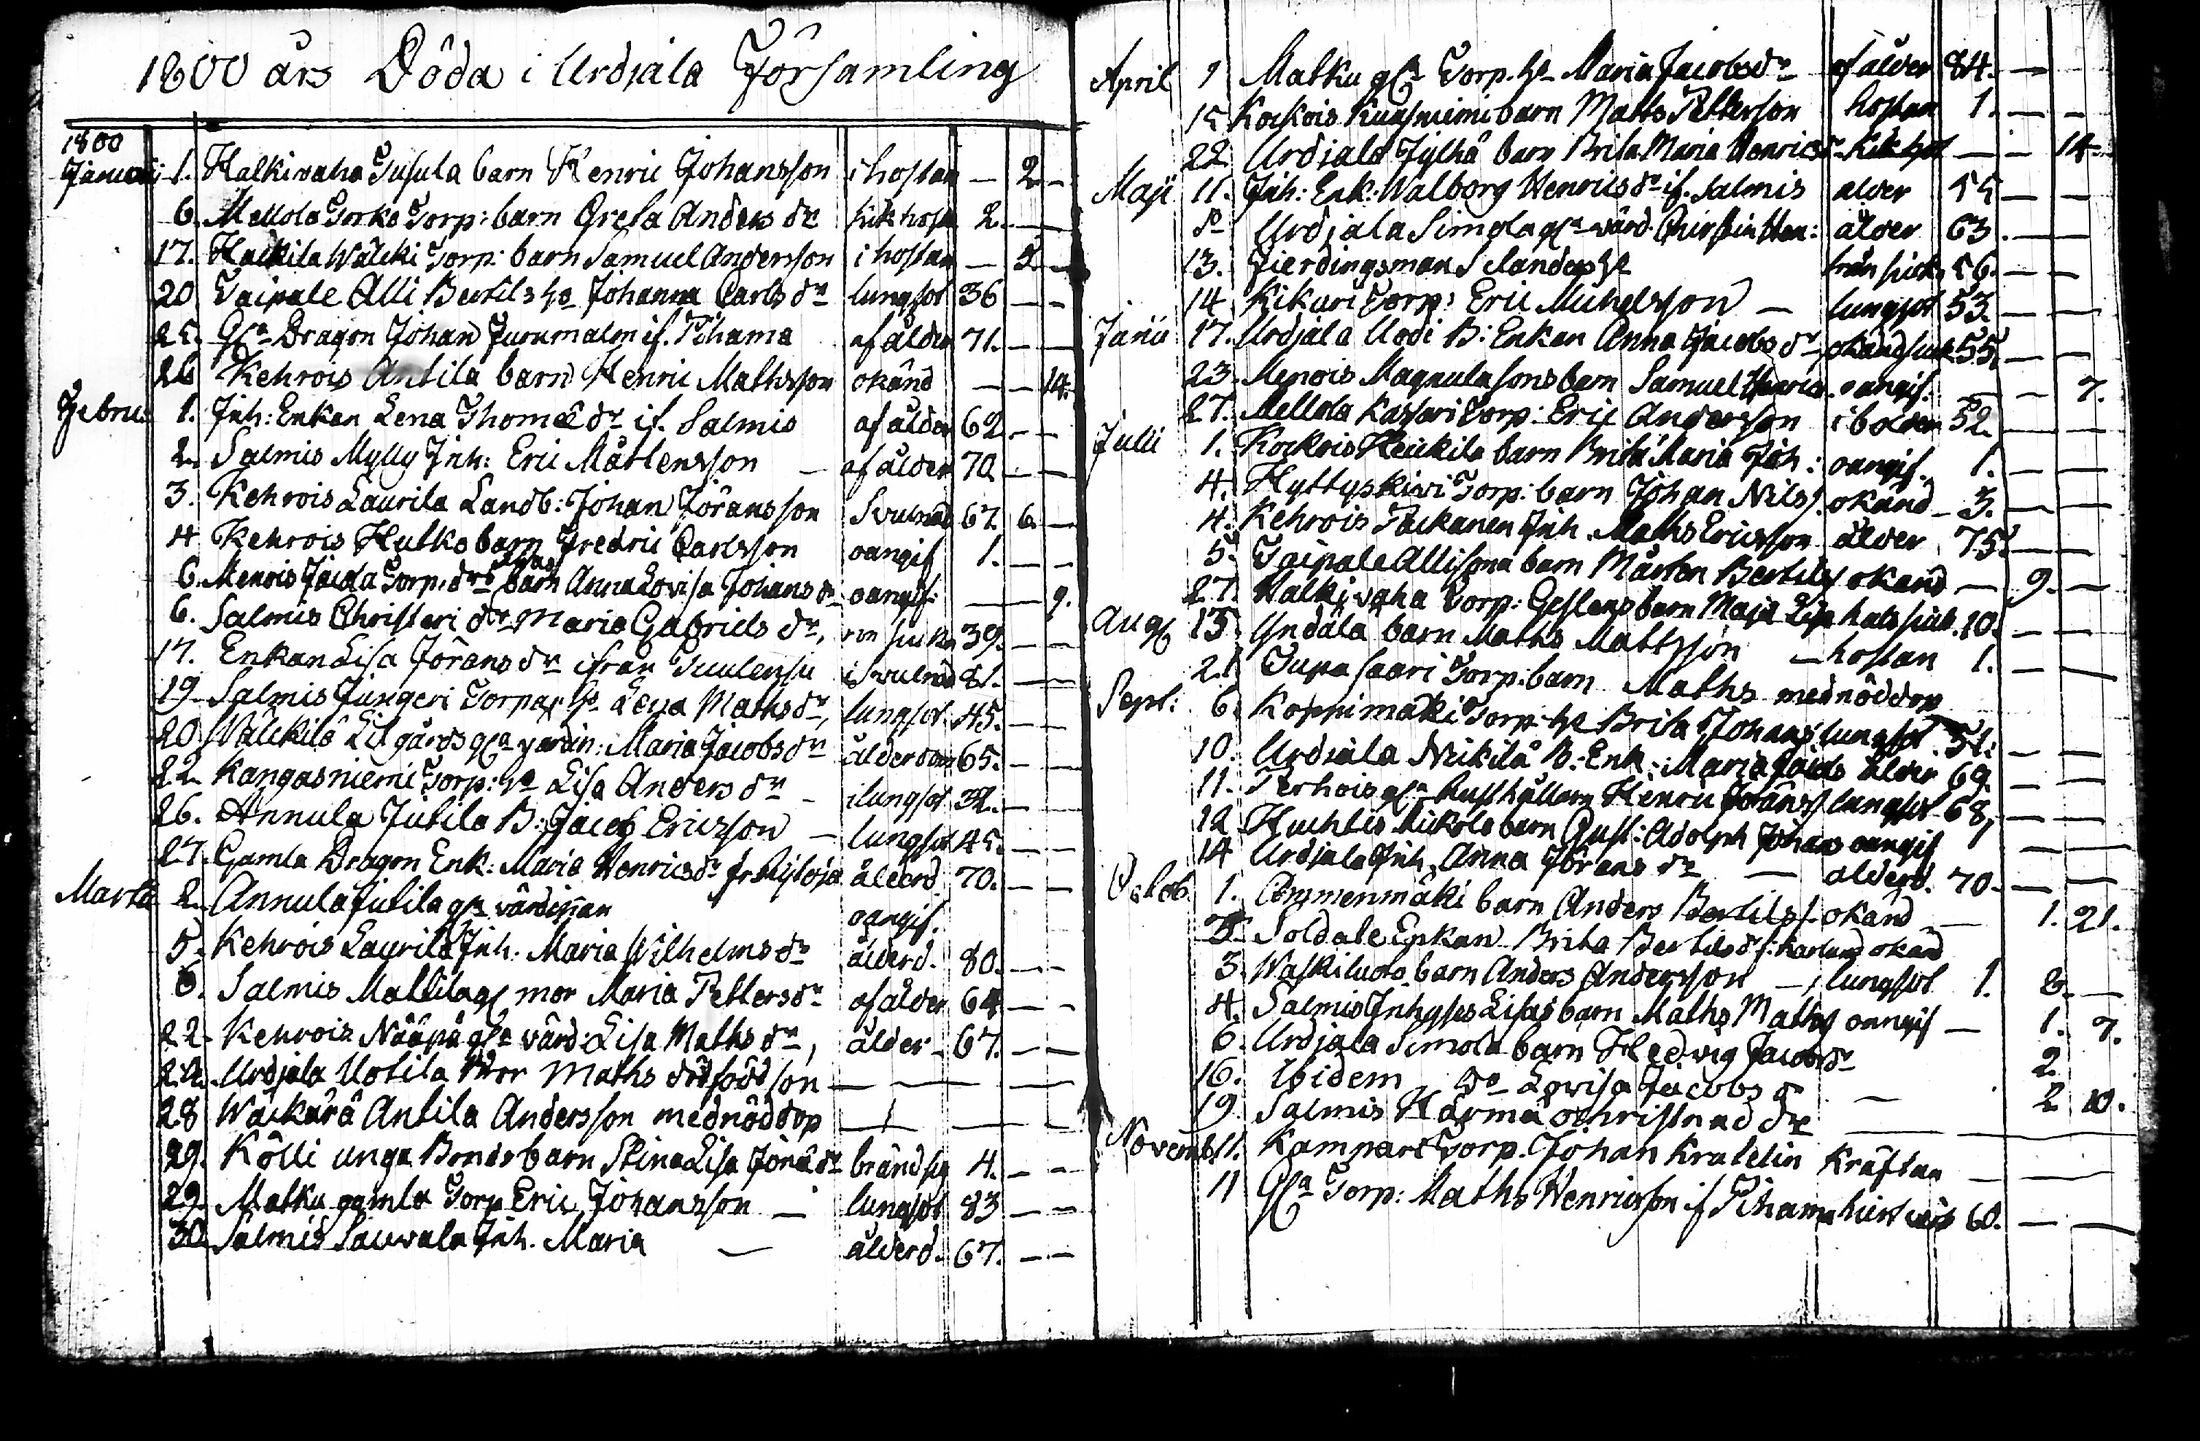 1800 års Döda i Urdiala Församling
1800
Januari 1. Halkivaha Tusula barn Henric Johansson i hostan — 2. —
6. Mellola Torko Torp: barn Greta Anders dr kikhosta 2. — —
17. Wälcki Torp: barn Samuel Andersson i hostan — 5. —
20 Taipale Alli Bertils h. Johanna Carls dr lungsot 36 — —
25. Gla Dragon Johan Jurumalm if. Pihama af ålder 71. — —
26 Kehrois Antila barn Henric Mathsson okänd — — 14.
Febru: 1. Inh: Enkan Lena Thomæ dr if. Salmis af ålder 62. — —
2. Salmis Mylly Inh: Eric Mårtensson — af ålder 70 — —
3. Kehrois Laurila Landb: Johan Jöransson Svulnad 67. 6. —
4 Kehrois Hutko barn Fredric Carlsson oangif 1. — —
6. Menois Jaida Torp. drs barn Anna Lovisa Johans dr oangif: — 9.
6. Salmis Christeri dr Maria Gabriels dr, 39. — —
17. Enkan Lisa Jörans dr ifrån i Svulnad 81. —
19. Salmis Jungeri Torpar h. Lena Maths dr, lungsot. 45. —
20 Wälckilä Lilgårds gla värdin: Maria Jacobs dr ålderdom 65. —
22 Kangasniemi Torp: h. Lisa Anders dr — i lungsot 32. —
26. Annula Jutila B: Jacob Ericsson — lungsot 45. —
27. Gamla Dragon Enk: Maria Henrics dr ålderd 70. — —
Martii 2. Annula Jutila gla värdinnan oangif.
5. Kehrois Laurila Inh: Maria Wilhelms dr ålderd. 80. — —
6. Salmis Mattila gl mor Maria Petters dr af ålder 64 — —
22. Kehrois Nääpä gla värd: Lisa Maths dr, ålder — 67. — —
22. Urdiala Uotila Maths dödfödd son — — — —
28 Wäckärä Antila Andersson mednöddöp — — — —
29. Kölli unga Bonde barn Stina Lisa brändsig 4. — —
29. Matku gamla Torp Eric Johansson — lungsot 83 — —
30 Salmis Sauvala Inh. Maria — ålderd. 67. — —
April 1 Matku gla Torp. h. Maria Jacobs dr af ålder 84. —
15 Kockois Kuusniemi barn Matts Petterson hostan 1. — —
22 Urdiala Jylhä barn Brita Maria Henrics dr kikhost — — 14.
Maji 11. Inh: Enk: Walborg Henrics dr if. Salmis ålder 55 —
Urdiala Simola gla värd. Chirstin Hen: ålder 63. —
13. Fierdingsman Selanders h. 56. — —
14 Kikuri Torp: Eric Michelsson — lungsot 53 — —
Junii 17. Urdiala Uoti B: Enkan Anna Jacobs dr okändsiuk 55. — —
23. Menois Magnula sons barn Samuel Henrics. oangif. — — 7.
27. Mellola Kassari Torp: Eric Andersson i bolder 52. — —
Julii 1. Kockois Heickilä barn Brita Maria Joh: oangif. 1. — —
4. Hyttyskivi Torp: barn Johan Nils s. okänd — 3. — —
4. Kehrois Packanen Inh. Maths Ericsson ålder 75. — —
5. Taipale Alli sons barn Mårten Bertils s okänd — 9. —
27. Halkivaha Torp: Geslens barn Maja Lisa halssiuk. 10. — —
Aug 13. Yndälä barn Maths Mattsson — hostan 1. —
21 Tupasaari Torp: barn Maths mednöddöp
Sept: 6. Koppimäki Torp: h. Brita Johans lungsot 51. — —
10. Urdiala Neikilä B: Enk: Maria Jacobs ålder 69 — —
11. Perhois gla Rusthållarn Henric Jörans s lungsot 68, — —
12 Huchtis Mickola barn Gust: Adolph Johans oangif 1 — —
14 Urdiala Inh. Anna Jörans dr — ålderd. 70. — —
Octob. 1. barn Anders Bertils s. okänd — 1. 21.
3. Soldate Enkan Brita Bertils dr okänd
3. Waskiluoto barn Anders Andersson — lungsot 1. 8. —
4. Salmis Inhyses Lisas barn Maths Maths s oangif — 1. 7.
6. Urdiala Simola barn Hedvig Jacobs dr 2
16. Ibidem do Lovisa Jacobs dr — 2 10.
19 Salmis Härmä ochristnad dr — —
Novemb. 11. Kampare Torp. Johan Kratelin Kräftan — —
11 Gla Torp: Maths Henricsson if Pihama 60. — —